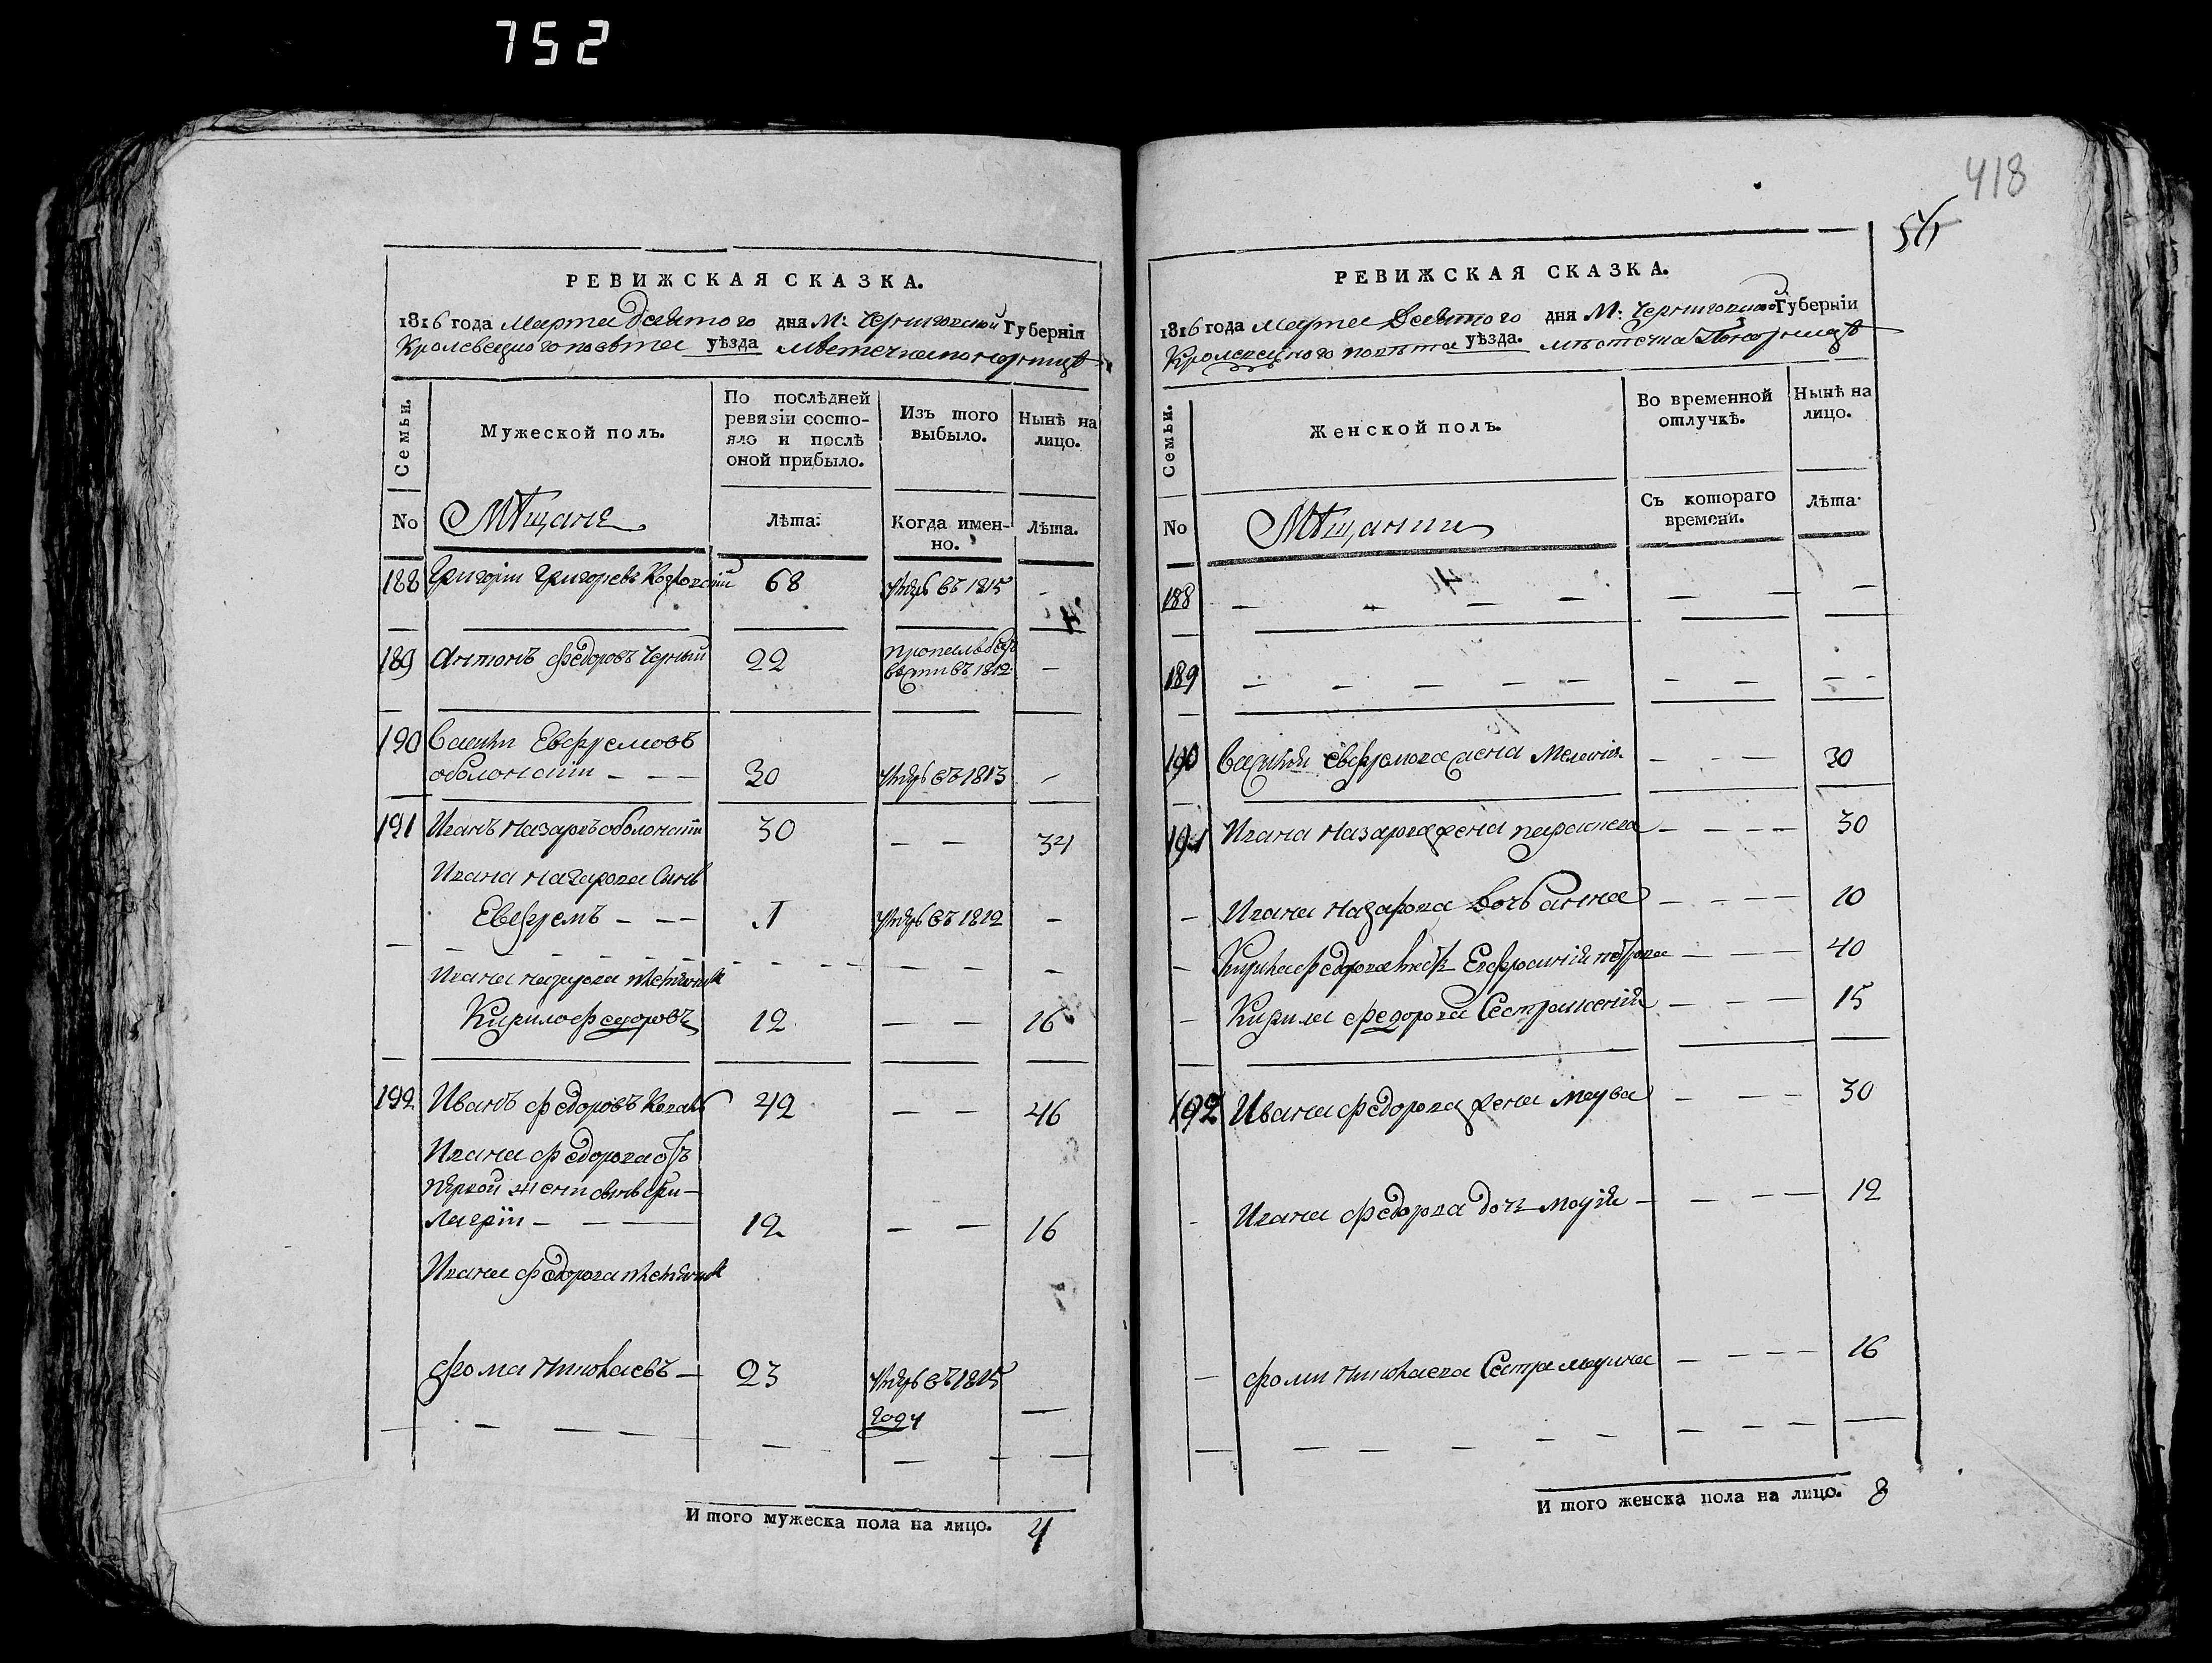 752
418
РЕВИЖСКАЯ СКАЗКА.
1816 года Марта Десятого дня М: Черниговской Губерніи
Кролевецкого повѣта уѣзда мѣстечка Понорницѣ
Семьи.
Мужеской полъ.
По послѣдней
ревизіи состо-
яло и послѣ
оной прибыло.
Изъ того
выбыло.
Нынѣ на
лицо.
No
Мѣщане
Лѣта:
Когда имен-
но.
Лѣта.
188 Григорій Григоревъ Козловскій 68 умеръ въ 1815 -
189 Антонъ Федоровъ Черный 22 пропалъ безъ
вести въ 1812 -
190 Василій Евфремовъ
оболонскій - - - 30 умеръ въ 1813 -
191 Иванъ Назаровъ оболонскій 30 - - 34
Ивана Назарова Синъ
Евфремъ - - - 1 умеръ въ 1812 -
Ивана Назарова племянникъ
Кирило Федоровъ 12 - - 16
192 Иванъ Федоровъ Коваль 42 - - 46
Ивана Федорова отъ
первой жени синъ Гри-
горій - - - 12 - - 16
Ивана Федорова племянникъ
Фома Николаевъ - 23 умеръ въ 1815
году -
И того мужеска пола на лицо. 4
РЕВИЖСКАЯ СКАЗКА.
1816 года Марта Десятого дня М: Черниговской Губерніи
Кролевецкого повѣта уѣзда. мѣстечка Понорницѣ
Семьи.
Женской полъ.
Во временной
отлучкѣ.
Нынѣ на
лицо.
No
Мѣщанки
Съ котораго
времени.
Лѣта
188 - - - - - - -
189 - - - - - - - - -
190 Василія Евфремова жена Меланія - - - 30
191 Ивана Назарова жена параскева - - - - 30
- Ивана Назарова Дочь анна - - - - 10
- Кирила Федорова Евфросинія Петрова - - - 40
- Кирила Федорова Сестра Ксенія - - - 15
192 Ивана Федорова жена - - - 30
- Ивана Федорова дочь Марія - - - - 12
- Фоми Николаева Сестра марина - - - - 16
И того женска пола на лицо. 8